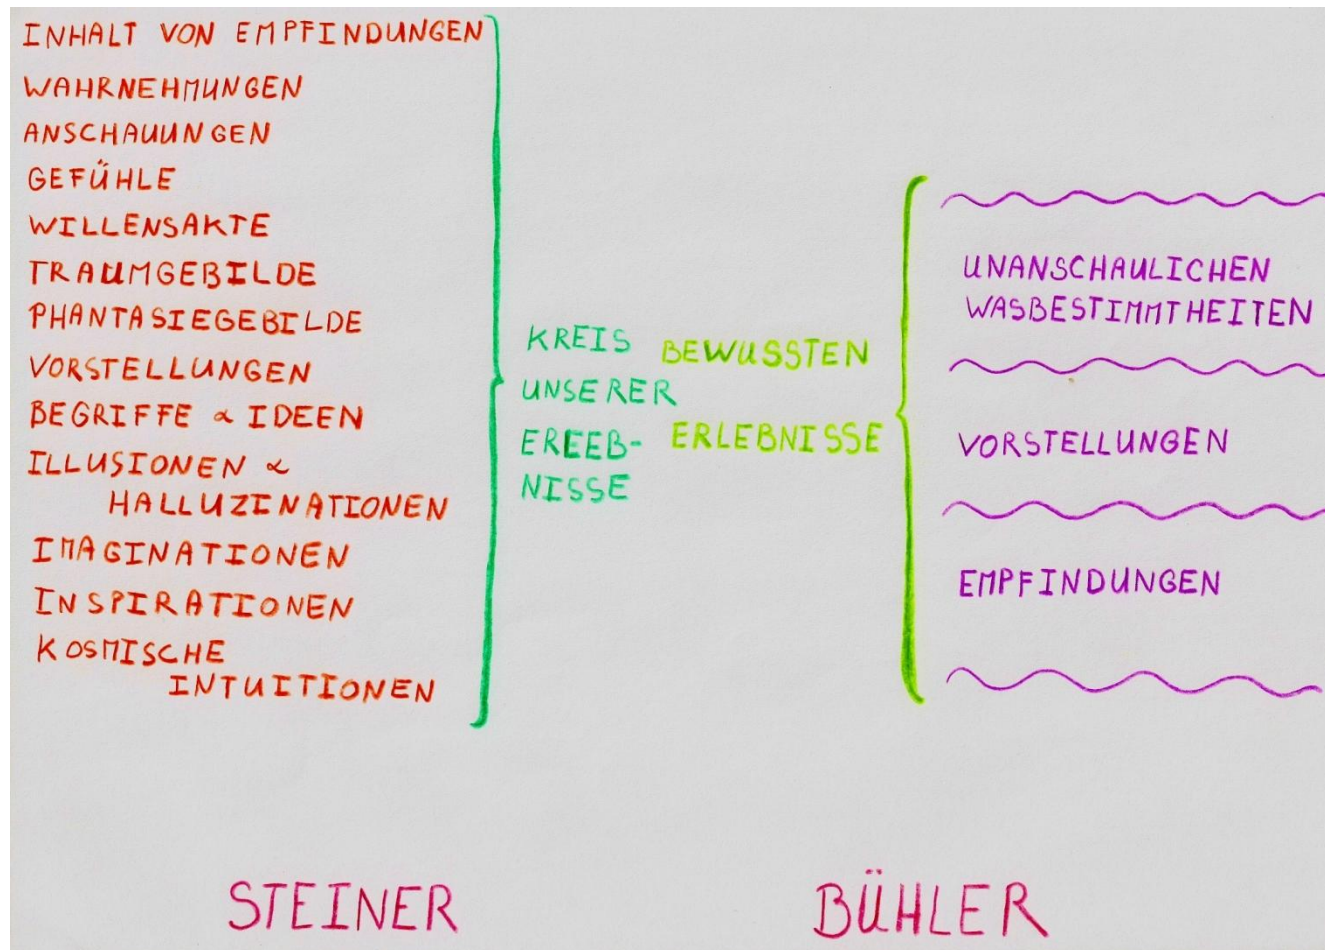 INHALT VON EMPFINDUNGEN
WAHRNEHMUNGEN
ANSCHAUUNGEN
GEFÜHLE
WILLENSAKTE
TRAUMGEBILDE
PHANTASIEGEBILDE
VORSTELLUNGEN
BEGRIFFE & IDEEN
ILLUSIONEN &
HALLUZINATIONEN
IMAGINATIONEN
INSPIRATIONEN
KOSMISCHE
INTUITIONEN
KREIS
UNSERER
EREEB-
NISSE
BEWUSSTEN
ERLEBNISSE
UNANSCHAULICHEN
WASBESTIMMTHEITEN
VORSTELLUNGEN
EMPFINDUNGEN
STEINER
BÜHLER